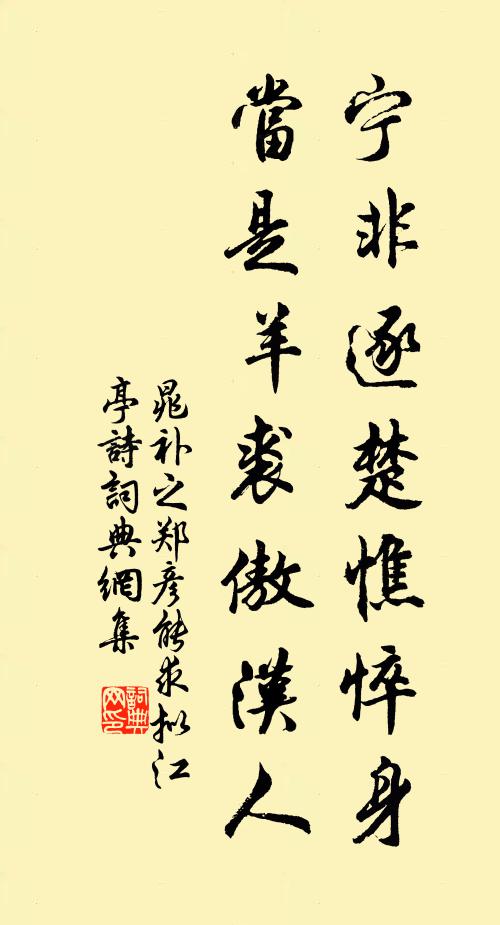 宁非逐楚憔悴身
當是羊裘傲漢人
晁补之郑彦能求拟江
亭詩詞典網集
詞典
网印